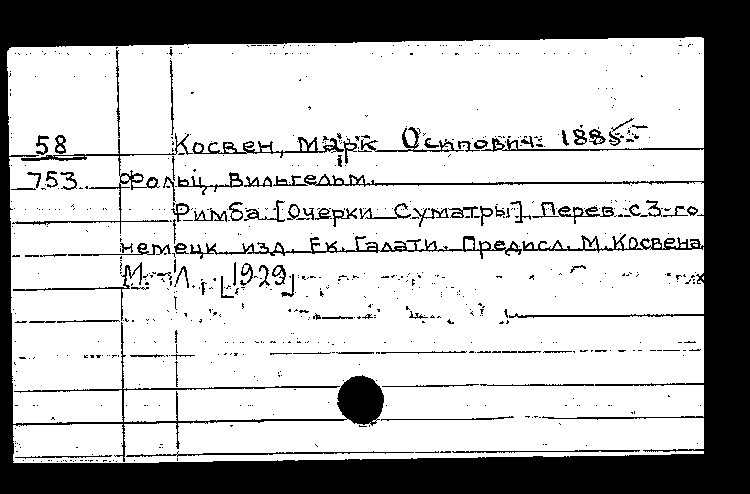 58 Косвен, Марк Осипович. 1885-
753 Фольц, Вильгельм.
Римба [Очерки Суматры]. Перев. с 3-го
немецк. изд. Ек. Галати. Предисл. М. Косвена
М. - Л., [1929]